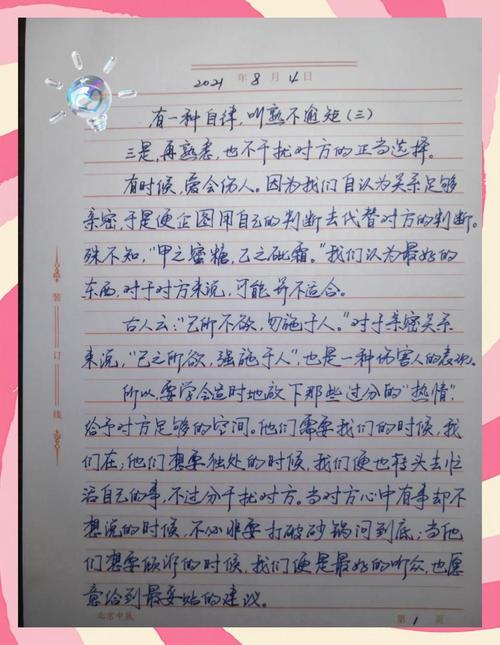 2021年8月4日
有一种自律,叫熟不逾矩(三)
三是,再熟悉,也不干扰对方的正当选择。
有时候,爱会伤人。因为我们自认为关系足够
亲密,于是便企图用自己的判断去代替对方的判断。
殊不知,"甲之蜜糖,乙之砒霜。"我们认为最好的
东西,对于对方来说,可能并不适合。
古人云:"己所不欲,勿施于人。"对于亲密关系
来说,"己之所欲,强施于人",也是一种伤害人的表现。
所以,要学会适时地放下那些过分的"热情",
给予对方足够的空间。他们需要我们的时候,我
们在;他们想要独处的时候,我们便也转头去忙
活自己的事,不过分干扰对方。当对方心中有事却不
想说的时候,不必非要打破砂锅问到底;当他
们想要倾诉的时候,我们便是最好的听众,也愿
意给到最妥帖的建议。
装订线
第1页